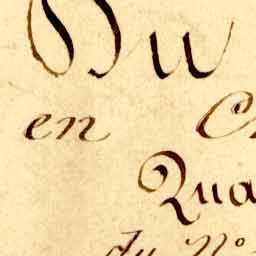 Du
en C
Qua
du N°